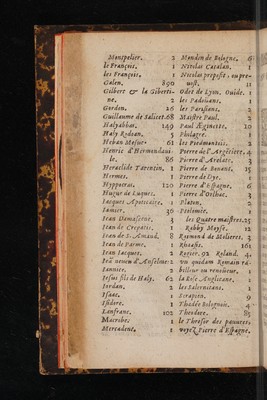 Montpelier. 2
le François. 1
les François. 1
Galen. 890
Gilbert & la Giberti-
ne. 2
Gordon. 26
Guillaume de Salicet. 68
Halyabbas. 149
Haly Rodoan. 5
Heban Mesue. 61
Henric d'Hermondaui-
le. 86
Heraclide Tarentin. 1
Hermes. 1
Hyppocras. 120
Hugue de Luques. 1
Iacques Apoticaire. 1
Iamier. 36
Iean Damascene. 3
Iean de Crepatis. 1
Iean de S. Amand. 8
Iean de Parme. 1
Iean Iacques. 2
Ieã neueu d'Anselme. 2
Iannice. 1
Iesus fils de Haly. 62
Iordan. 2
Isaac. 2
Isidore. 1
Lanfranc. 102
Macrobe. 1
Mercadent. 1
Mondein de Bologne. 6
Nicolas Catalan. 1
Nicolas preposit, ou pre-
uost. 11
Odet de Lyon. Ouide. 1
les Padoüans. 1
les Parisiens. 2
Maistre Paul. 2
Paul Æginette. 10
Philagre. 1
les Piedmontois. 2
Pierre de l'Argeliere. 4
Pierre d'Arelate. 3
Pierre de Bonant. 15
Pierre de Dye. 1
Pierre d'Espagne. 6
Pierre d'Orlhac. 3
Platon. 2
Ptolomée. 1
les Quatre maistres. 25
Rabby Moyse. 12
Raymond de Molieres. 3
Rhasis. 161
Rogier. 92 Roland. 4
vn quidam Romain ra-
billeur ou renoüeur. 1
la Rose Anglicane. 1
les Salernitans. 1
Serapion. 9
Thadée Bolognois. 4
Theodore. 85
le Thresor des pauures
voyez Pierre d'Espagne.